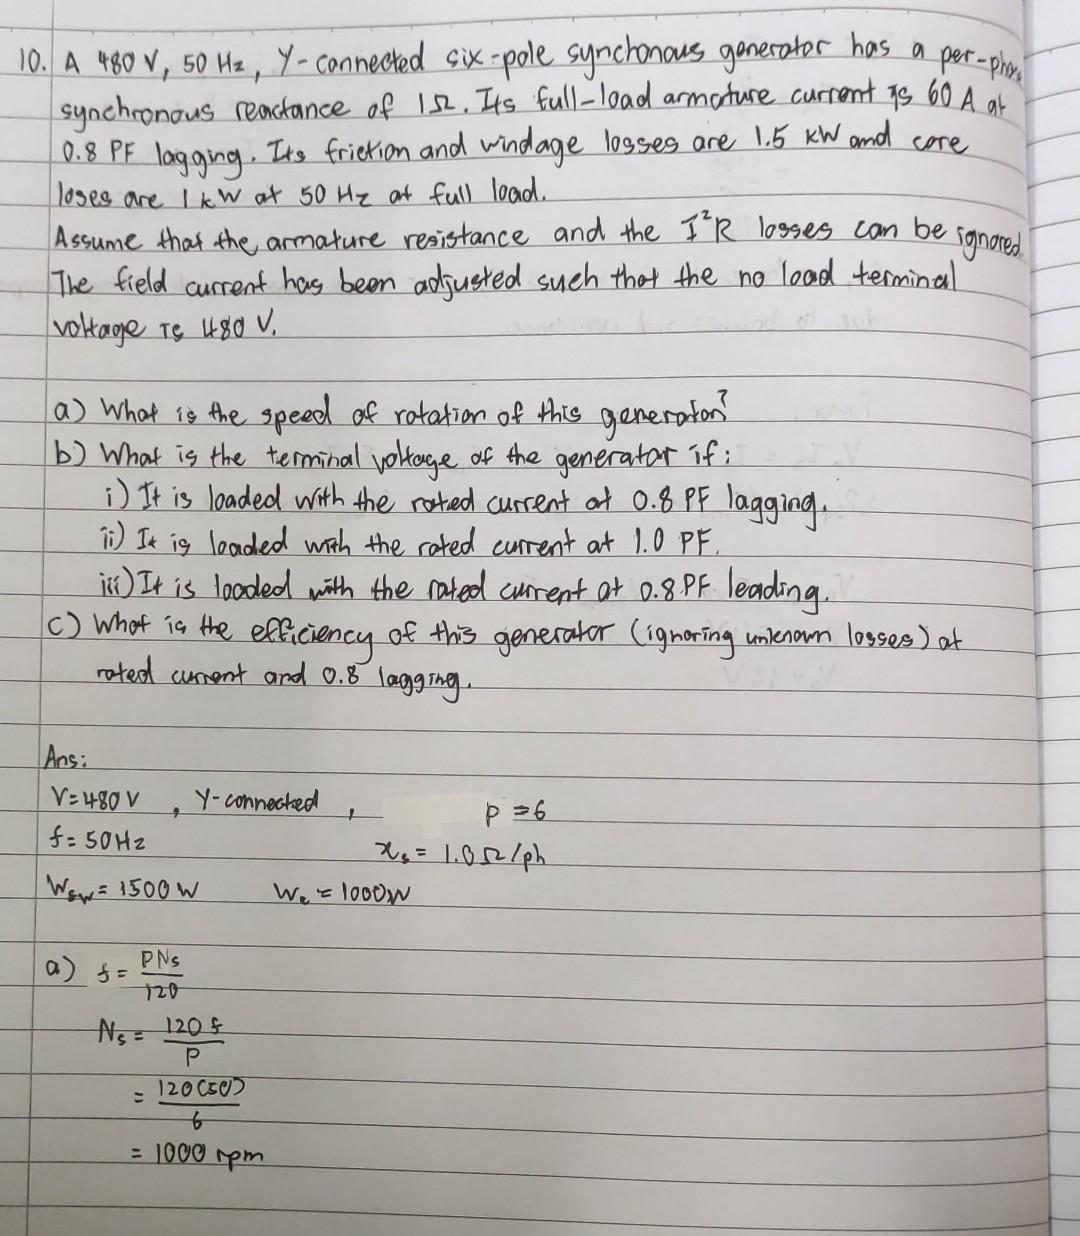 10. A 480 V, 50 Hz, Y-connected six-pole synchonous generator has a per-phase
synchronous reactance of 1Ω. Its full-load armature current is 60 A at
0.8 PF lagging. Its friction and windage losses are 1.5 kW and core
loses are 1 kW at 50 Hz at full load.
Assume that the armature resistance and the I²R losses can be ignored.
The field current has been adjusted such that the no load terminal
voltage is 480 V.
a) What is the speed of rotation of this generator?
b) What is the terminal voltage of the generator if:
i) It is loaded with the rated current at 0.8 PF lagging.
ii) It is loaded with the rated current at 1.0 PF.
iii) It is loaded with the rated current at 0.8 PF leading.
c) What is the efficiency of this generator (ignoring unknown losses) at
rated current and 0.8 lagging.
Ans:
V=480 V, Y-connected, P=6
f=50Hz xs = 1.0 Ω/ph
Wfw = 1500 W Wc = 1000W
a) f = PNs
120
Ns = 120 f
P
= 120(50)
6
= 1000 rpm